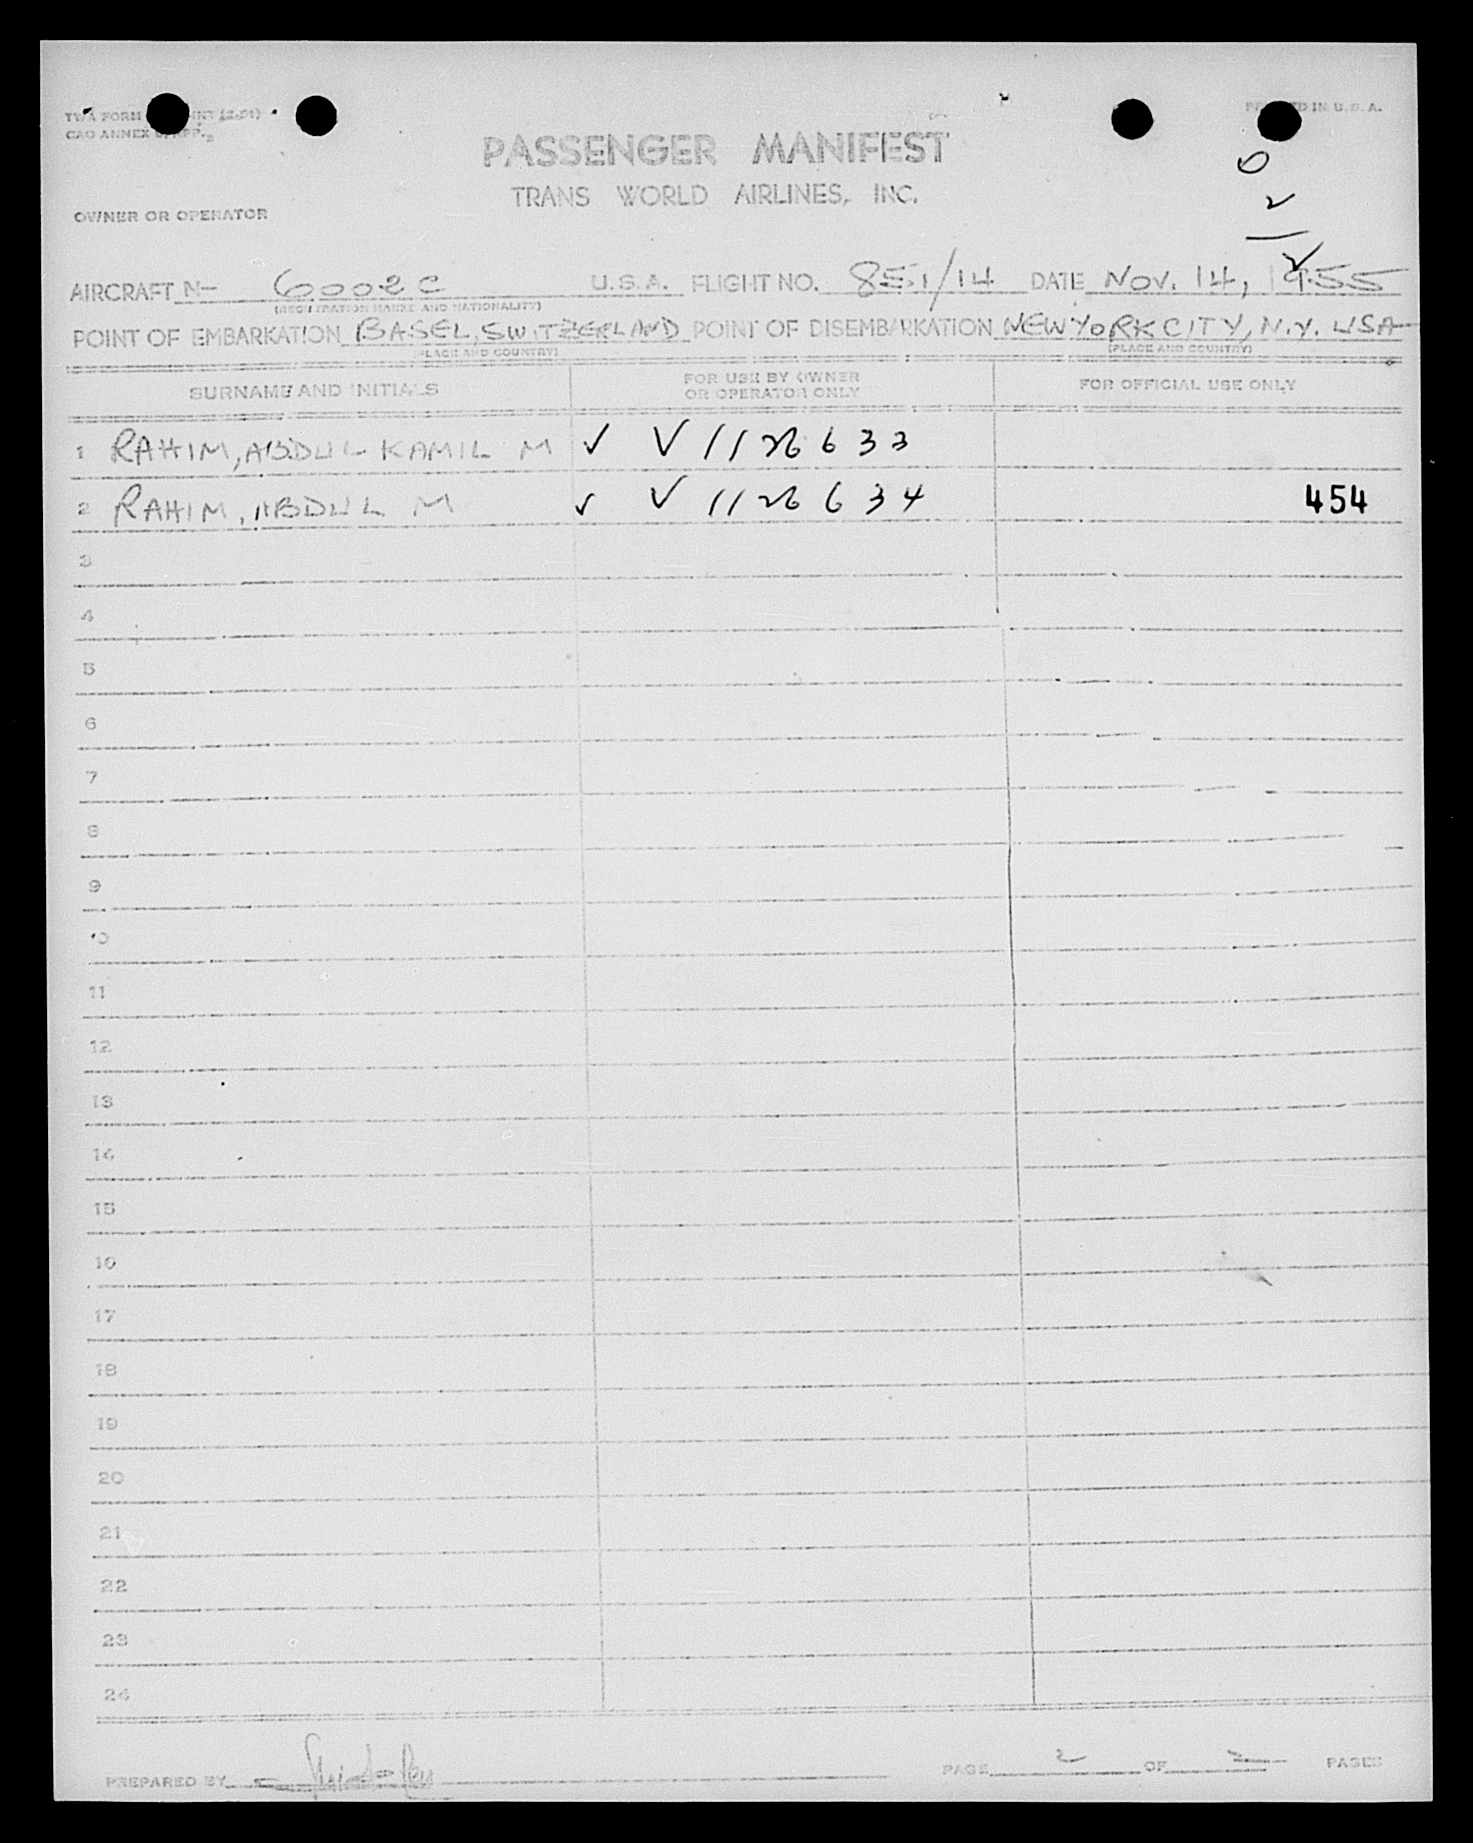 TWA FORM
PRINTED IN U.S.A.
PASSENGER MANIFEST
TRANS WORLD AIRLINES, INC.
0
2
2
OWNER OR OPERATOR
AIRCRAFT N- 6002C U.S.A. FLIGHT NO. 851/14 DATE NOV. 14, 1955
(REGISTRATION MARKS AND NATIONALITY)
POINT OF EMBARKATION BASEL, SWITZERLAND POINT OF DISEMBARKATION NEW YORK CITY, N.Y. USA
(PLACE AND COUNTRY) (PLACE AND COUNTRY)
SURNAME AND INITIALS FOR USE BY OWNER OR OPERATOR ONLY FOR OFFICIAL USE ONLY
1 RAHIM, ABDUL KAMIL M ✓ ✓ 1126633
2 RAHIM, ABDUL M ✓ ✓ 1126634 454
3
4
5
6
7
8
9
10
11
12
13
14
15
16
17
18
19
20
21
22
23
24
PREPARED BY PAGE 2 OF 2 PAGES